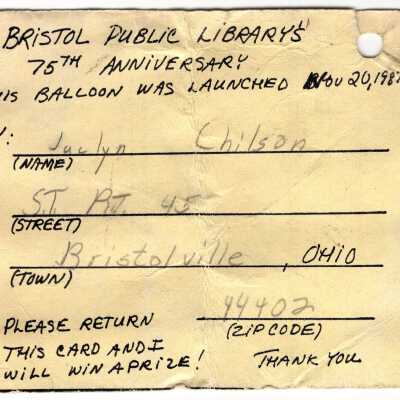 BRISTOL PUBLIC LIBRARY'S
75TH ANNIVERSARY
IS BALLOON WAS LAUNCHED NOV 20, 1987
Y:
Jaclyn Chilson
(NAME)
ST. RT. 45
(STREET)
Bristolville, OHIO
(TOWN)
44402
(ZIP CODE)
PLEASE RETURN
THIS CARD AND I
WILL WIN A PRIZE! THANK YOU